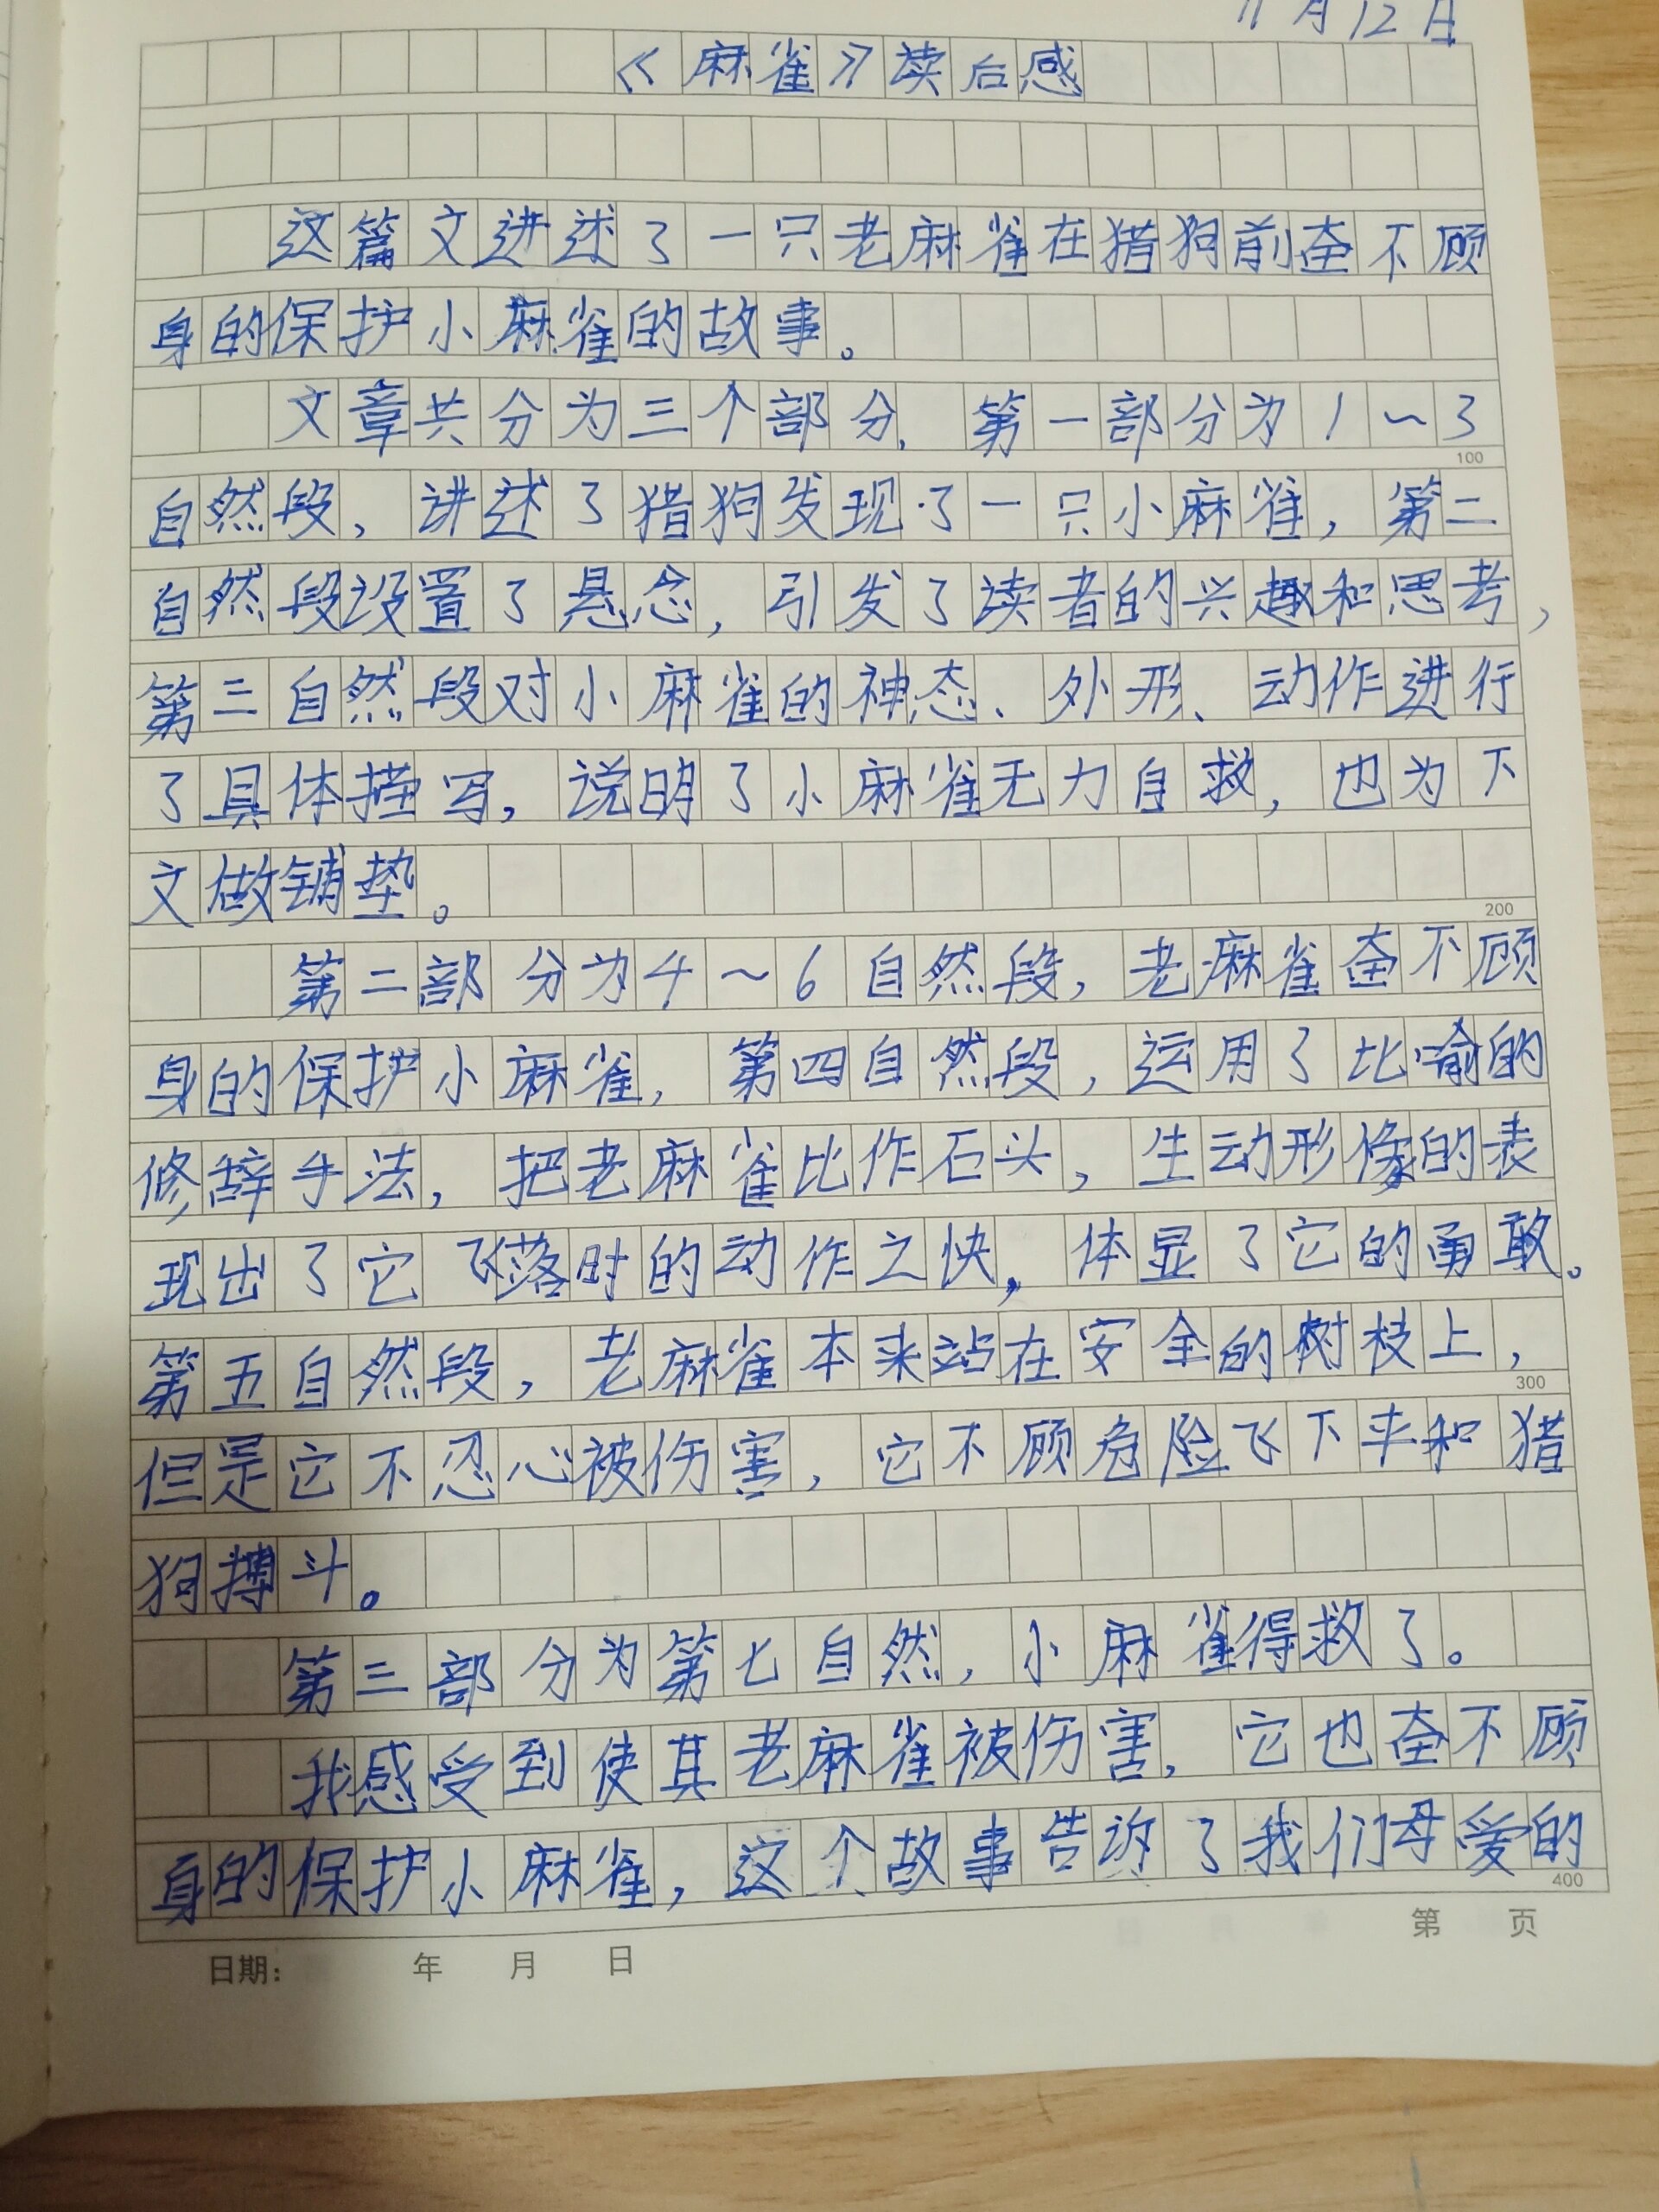 11月12日
《麻雀》读后感
这篇文讲述了一只老麻雀在猎狗前奋不顾
身的保护小麻雀的故事。
文章共分为三个部分,第一部分为1~3
自然段,讲述了猎狗发现了一只小麻雀,第二
自然段设置了悬念,引发了读者的兴趣和思考,
第三自然段对小麻雀的神态、外形、动作进行
了具体描写,说明了小麻雀无力自救,也为下
文做铺垫。
200
第二部分为4~6自然段,老麻雀奋不顾
身的保护小麻雀,第四自然段,运用了比喻的
修辞手法,把老麻雀比作石头,生动形像的表
现出了它飞落时的动作之快,体显了它的勇敢。
第五自然段,老麻雀本来站在安全的树枝上,
300
但是它不忍心被伤害,它不顾危险飞下来和猎
狗搏斗。
第三部分为第七自然,小麻雀得救了。
我感受到使其老麻雀被伤害,它也奋不顾
身的保护小麻雀,这个故事告诉了我们母爱的
400
第 页
日期: 年 月 日
100